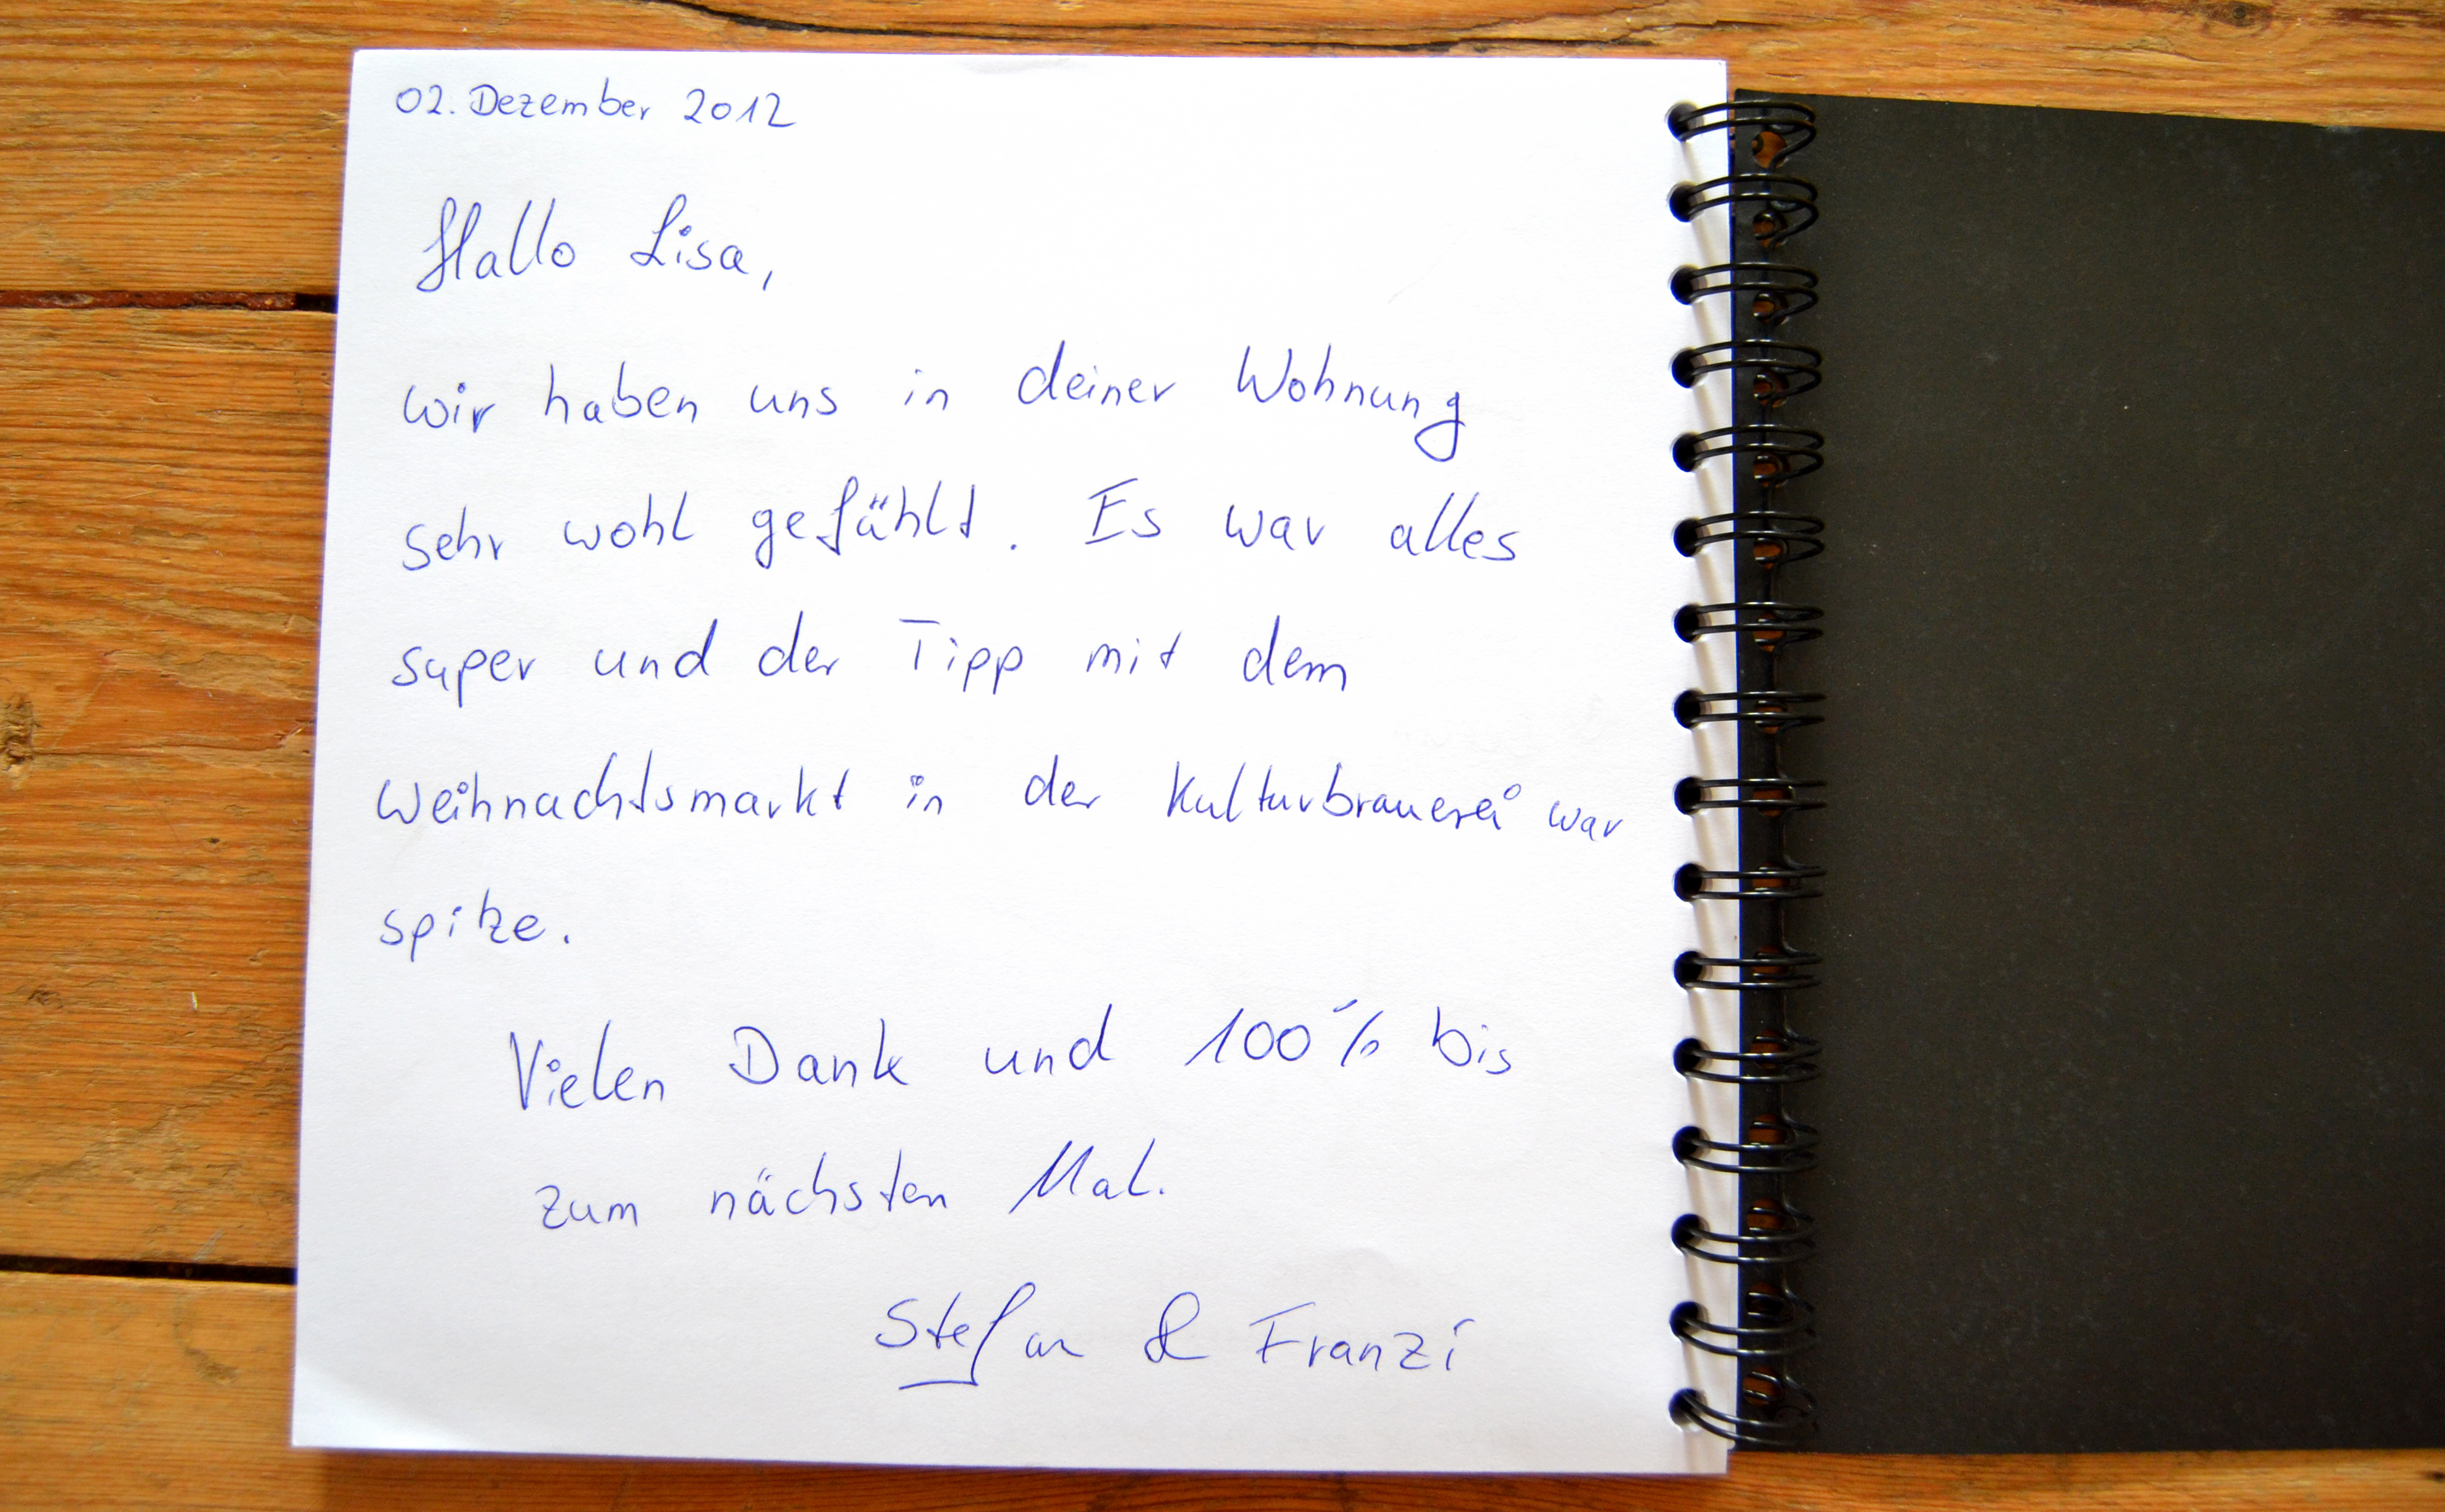 02. Dezember 2012
Hallo Lisa,
wir haben uns in deiner Wohnung
sehr wohl gefühlt. Es war alles
super und der Tipp mit dem
Weihnachtsmarkt in der Kulturbrauerei war
spitze.
Vielen Dank und 100% bis
zum nächsten Mal.
Stefan & Franzi